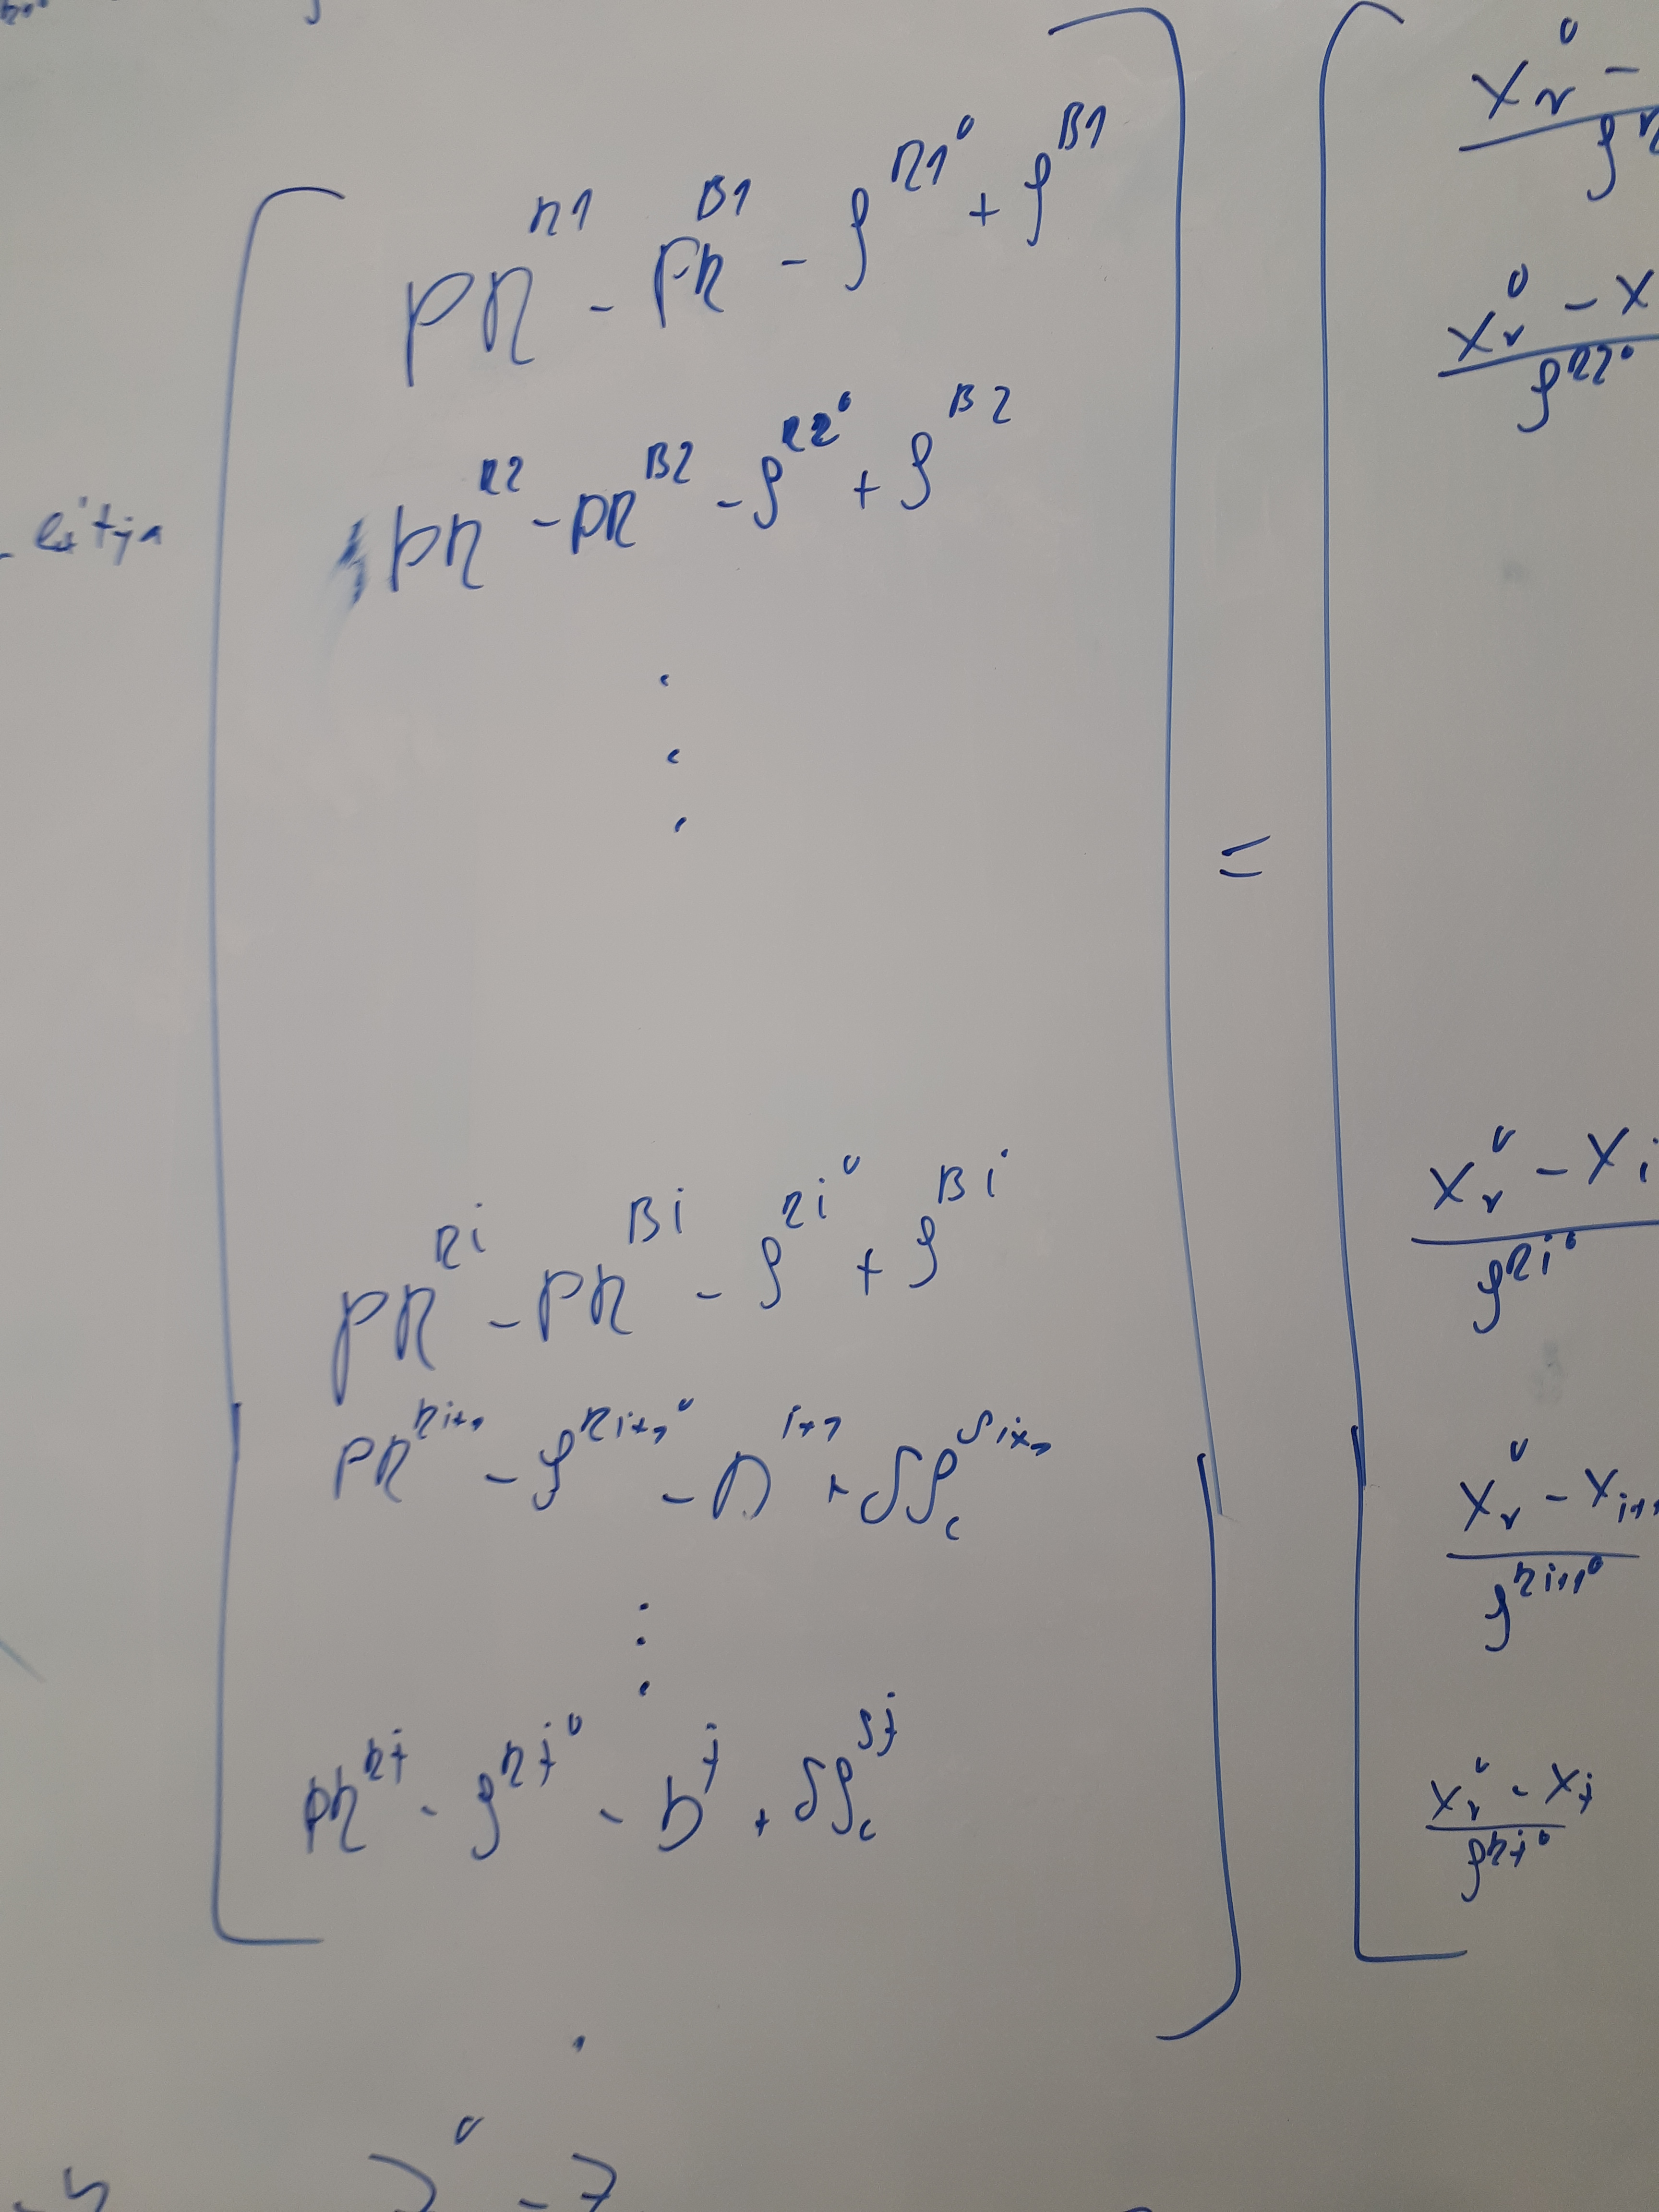 PR^{R1} - PR^{B1} - ρ^{R1^0} + ρ^{B1}
PR^{R2} - PR^{B2} - ρ^{R2^0} + ρ^{B2}
⋮
=
PR^{Ri} - PR^{Bi} - ρ^{Ri^0} + ρ^{Bi}
PR^{Ri+1} - ρ^{Ri+1^0} - D^{i+1} + δρ_c^{Si+1}
⋮
PR^{Rj} - ρ^{Rj^0} - b^j + δρ_c^{Sj}
X_r^0 -
X_r^0 - X
ρ^{R2^0}
X_r^0 - X_i
ρ^{Ri^0}
X_r^0 - X_{i+1}
ρ^{Ri+1^0}
X_r^0 - X_j
ρ^{Rj^0}